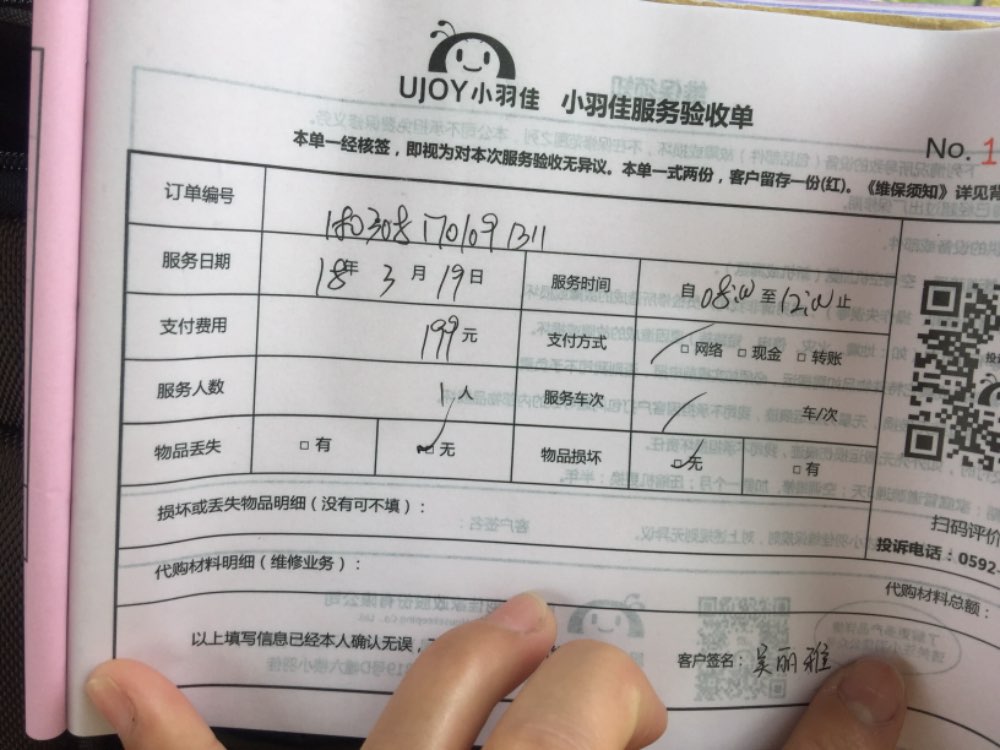 UJOY小羽佳 小羽佳服务验收单
No. 1
本单一经核签，即视为对本次服务验收无异议。本单一式两份，客户留存一份(红)。《维保须知》详见背
订单编号 1803081701091311
服务日期 18年 3月 19日 服务时间 自 08:00 至 12:00 止
支付费用 199元 支付方式 □网络 □现金 □转账
服务人数 1人 服务车次 车/次
物品丢失 □有 ☑无 物品损坏 ☑无 □有
损坏或丢失物品明细（没有可不填）：
扫码评价
投诉电话：0592-
代购材料明细（维修业务）：
代购材料总额：
以上填写信息已经本人确认无误，
客户签名：吴丽雅